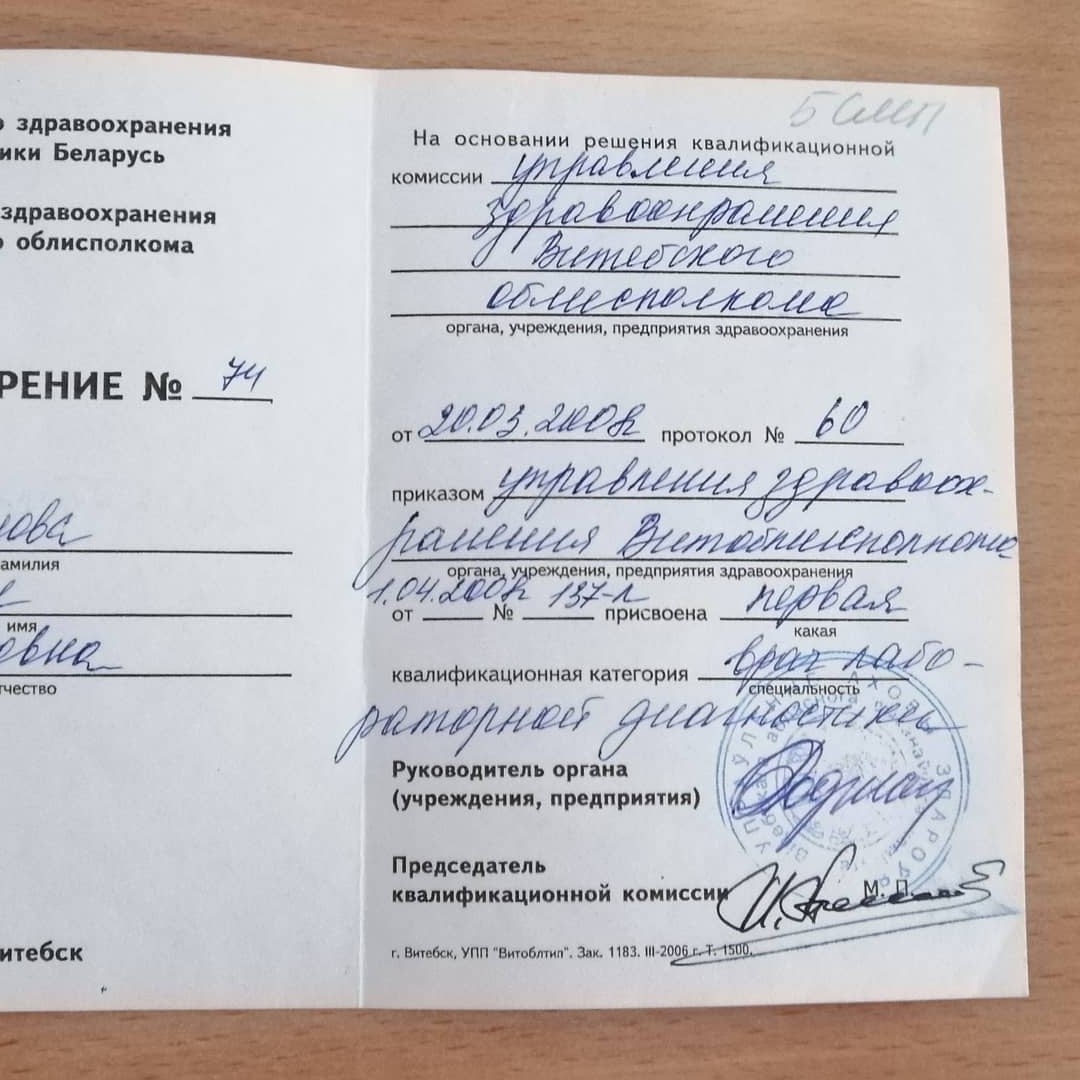 о здравоохранения
ики Беларусь
здравоохранения
о облисполкома
РЕНИЕ № 74
нова
амилия
имя
овна
тчество
итебск
БСМП
На основании решения квалификационной
комиссии управления
здравоохранения
Витебского
облисполкома
органа, учреждения, предприятия здравоохранения
от 20.03.2008г. протокол № 60
приказом управления здравоох-
ранения Витоблисполкома
органа, учреждения, предприятия здравоохранения
от 1.04.2008г. № 137-л присвоена первая
какая
квалификационная категория врач лабо-
специальность
раторной диагностики
Руководитель органа
(учреждения, предприятия)
Председатель
квалификационной комиссии
М. П.
г. Витебск, УПП "Витоблтип". Зак. 1183. III-2006 г. Т. 1500.